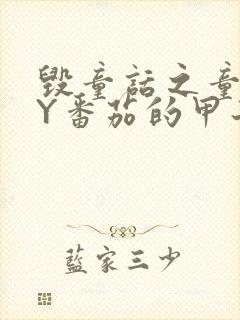 毁童话之童
Y番茄的甲
藍家三少